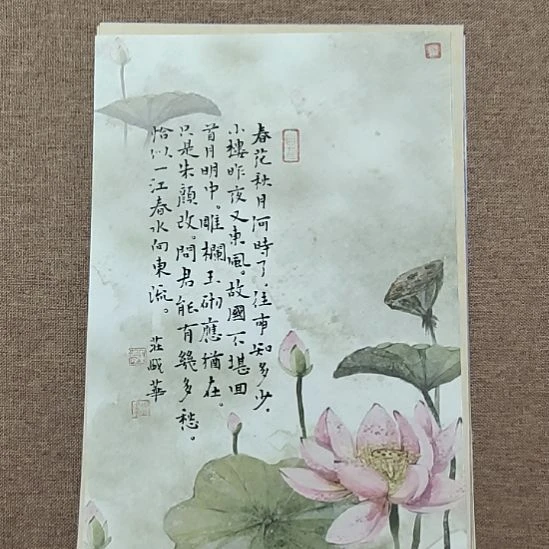 春花秋月何時了，往事知多少。
小樓昨夜又東風。故國不堪回
首月明中。雕欄玉砌應猶在。
只是朱顏改。問君能有幾多愁。
恰似一江春水向東流。
莊 華